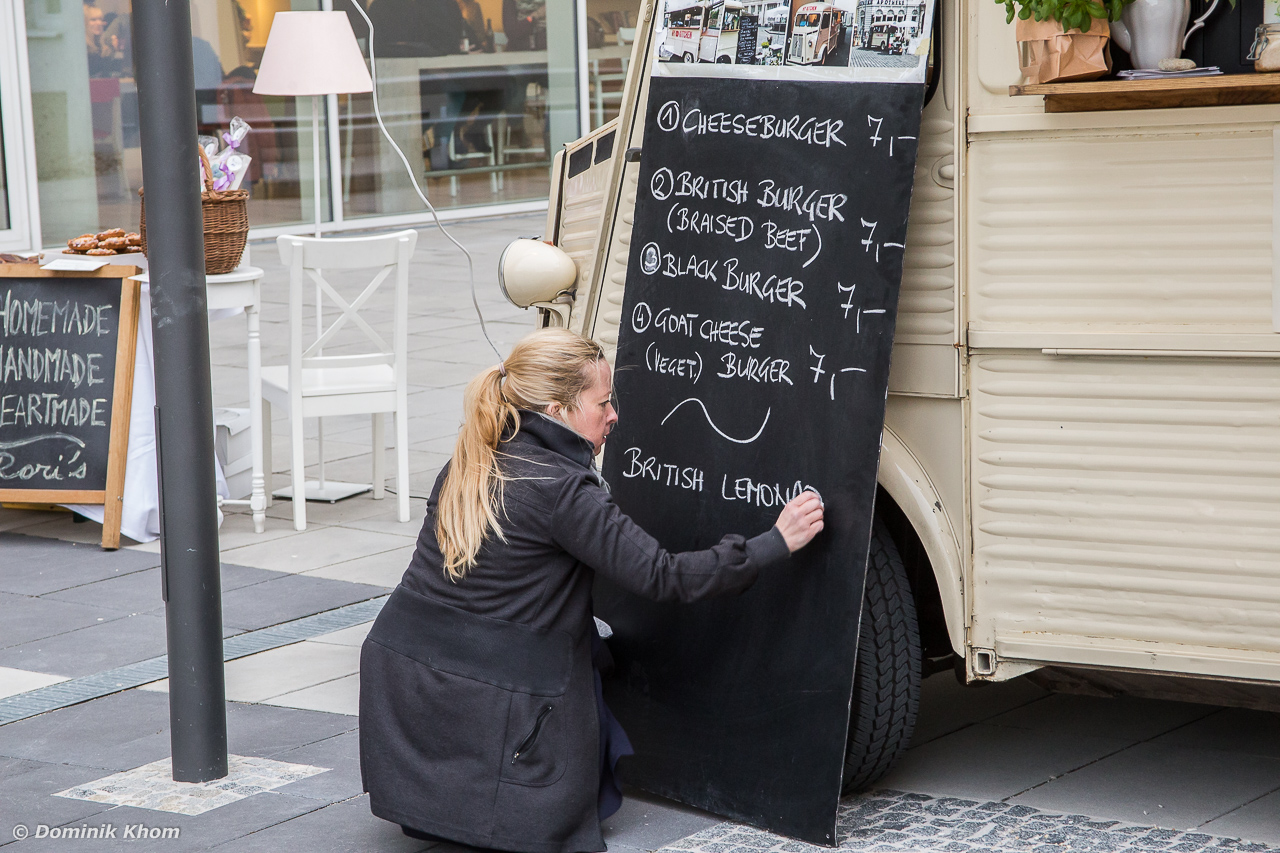 ① CHEESEBURGER 7,-
② BRITISH BURGER
(BRAISED BEEF) 7,-
③ BLACK BURGER 7,-
④ GOAT CHEESE
(VEGET.) BURGER 7,-
BRITISH LEMONAD
HOMEMADE
HANDMADE
HEARTMADE
Rori's
© Dominik Khom